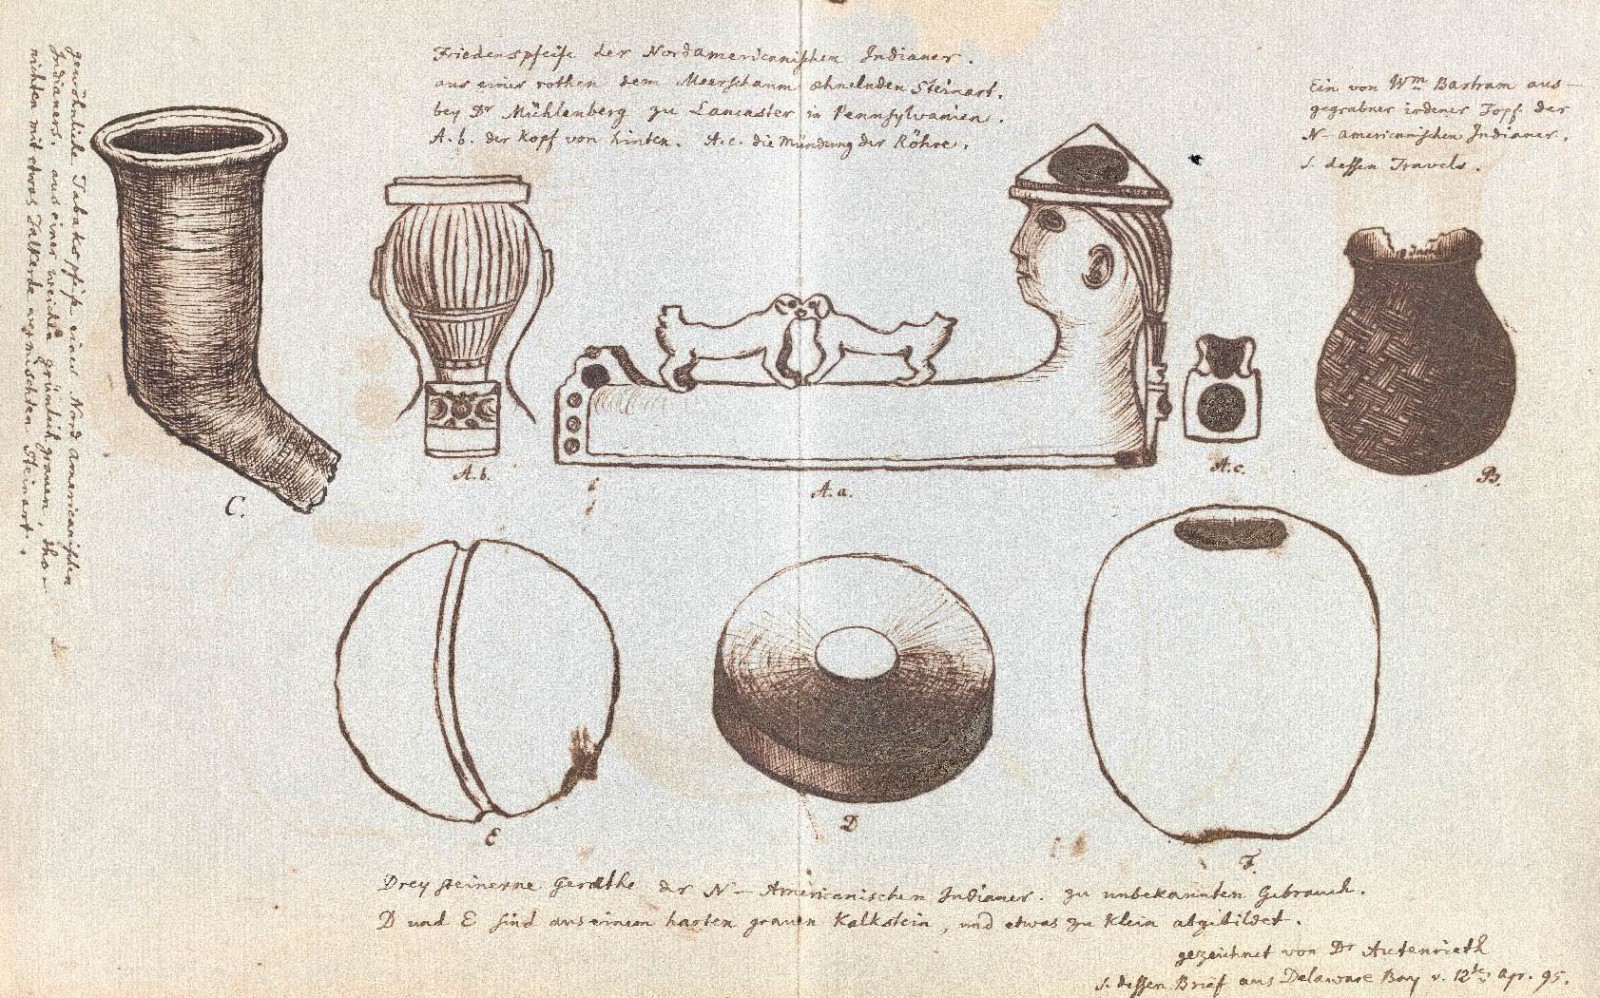 Friedenspfeife der Nordamericanischen Indianer.
aus einer rothen dem Meerschaum ähnelnden Steinart.
bey Dr Mühlenberg zu Lancaster in Pennsylvanien.
A.b. der Kopf von hinten. A.c. die Mündung der Röhre.
Ein von Wm Bartram aus-
gegrabner irdener Topf der
N-americanischen Indianer.
s. dessen Travels.
gewöhnliche Tabakspfeife eines Nord americanischen
Indianers. aus einer weichen grünlich grauen, tho-
nichten mit etwas Talkerde vermischten Steinart.
C.
A.b.
A.a.
A.c.
B.
E
D
F.
Drey steinerne Geräthe der N-Americanischen Indianer. zu unbekannten Gebrauch.
D und E sind aus einem harten grauen Kalkstein, und etwas zu Klein abgebildet.
gezeichnet von Dr Autenrieth
s. dessen Brief aus Delaware Bay v. 12ten Apr. 95.